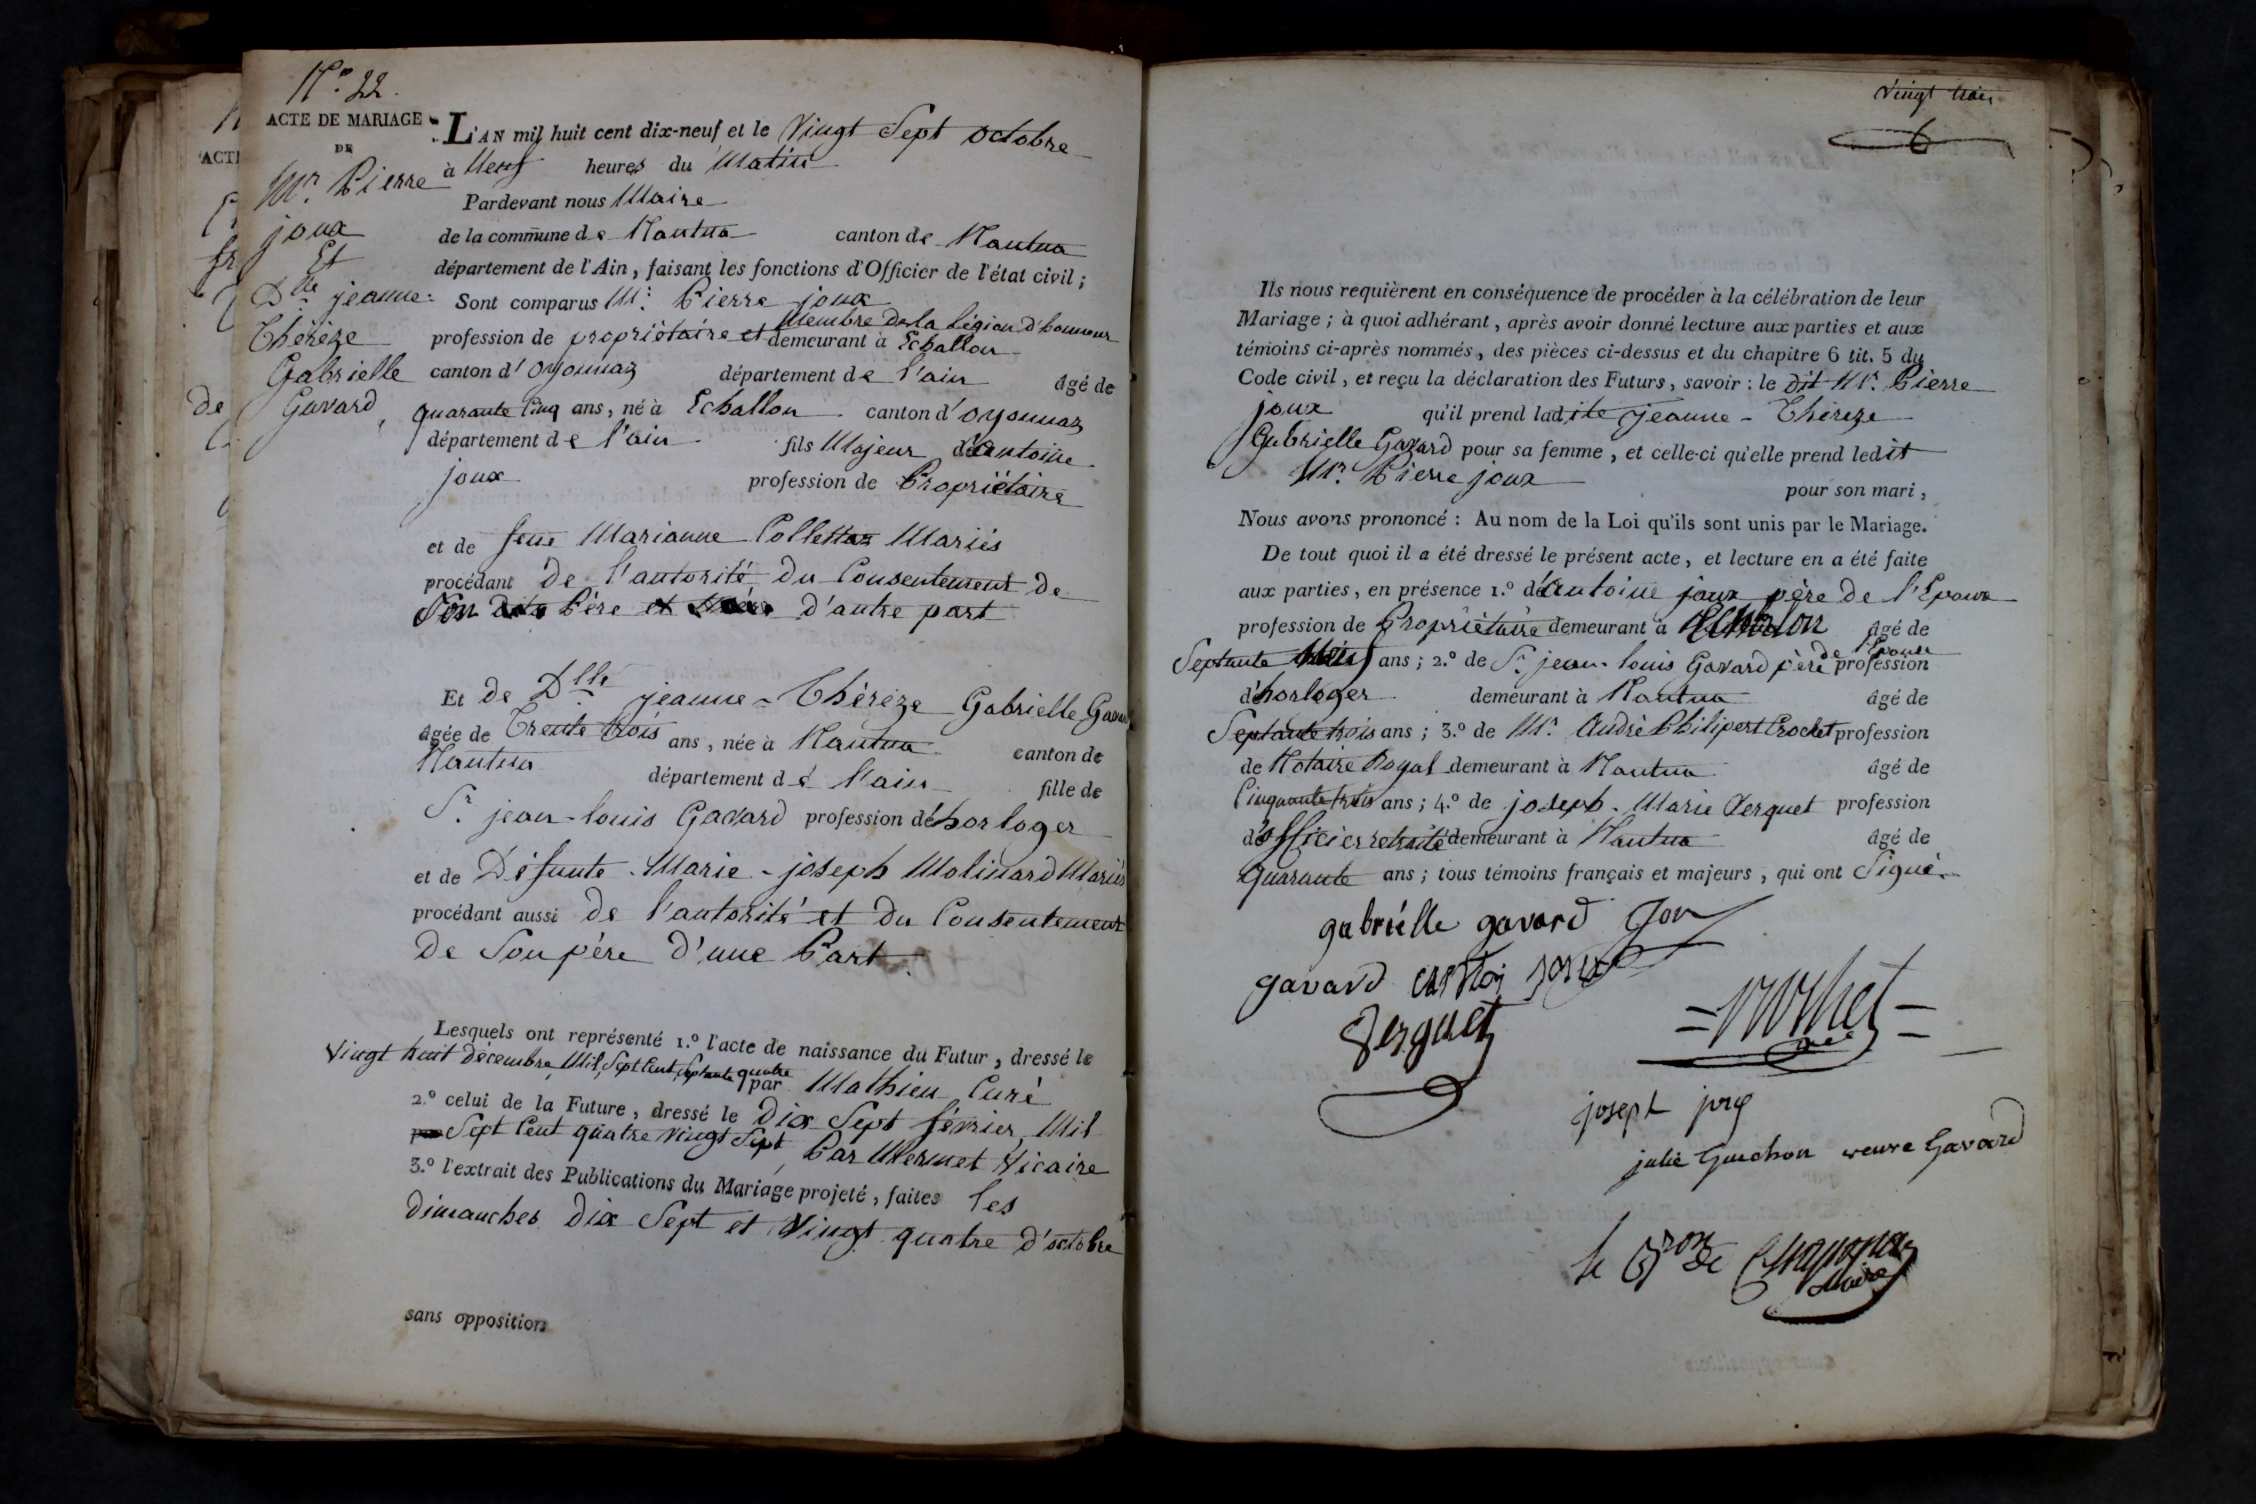 N.° 22.
ACTE DE MARIAGE
DE
Mr. Pierre
joux
Et
Dlle jeanne-
Thérèze
Gabrielle
Gavard
L'AN mil huit cent dix-neuf et le Vingt Sept octobre
à Neuf heures du Matin
Pardevant nous Maire
de la commune de Nantua canton de Nantua
département de l'Ain, faisant les fonctions d'Officier de l'état civil;
Sont comparus Mr. Pierre joux
Membre de la Légion d'honneur
profession de propriétaire et demeurant à Echallon
canton d'Oyonnaz département de l'ain âgé de
quarante Cinq ans, né à Echallon canton d'Oyonnaz
département de l'ain fils Majeur d'Antoine
joux profession de Propriétaire
et de feue Marianne Collettaz Mariés
procédant de l'autorité du Consentement de
Son Père d'autre part
Et de Dlle jeanne-Thérèze Gabrielle Gavard
âgée de Trente trois ans, née à Nantua canton de
Nantua département de l'ain fille de
Sr. jean-louis Gavard profession d'horloger
et de Défunte Marie-joseph Molinard Mariés
procédant aussi de l'autorité et du Consentement
de Son père d'une Part.
Lesquels ont représenté 1.° l'acte de naissance du Futur, dressé le
Vingt huit décembre Mil Sept Cent Septante quatre
par Mathieu Curé
2.° celui de la Future, dressé le Dix Sept février, Mil
Sept Cent quatre vingt Sept Par Mermet Vicaire
3.° l'extrait des Publications du Mariage projeté, faites les
dimanches dix Sept et Vingt quatre d'octobre
sans opposition
Vingt trois
Ils nous requièrent en conséquence de procéder à la célébration de leur
Mariage; à quoi adhérant, après avoir donné lecture aux parties et aux
témoins ci-après nommés, des pièces ci-dessus et du chapitre 6 tit. 5 du
Code civil, et reçu la déclaration des Futurs, savoir: le dit Mr. Pierre
joux qu'il prend ladite jeanne-Thérèze
Gabrielle Gavard pour sa femme, et celle-ci qu'elle prend ledit
Mr. Pierre joux pour son mari,
Nous avons prononcé: Au nom de la Loi qu'ils sont unis par le Mariage.
De tout quoi il a été dressé le présent acte, et lecture en a été faite
aux parties, en présence 1.° d'Antoine joux père de l'Epoux
profession de Propriétaire demeurant à Echalon âgé de
Septante ans; 2.° de Sr. jean-louis Gavard père de l'Epouse profession
d'horloger demeurant à Nantua âgé de
Septante trois ans; 3.° de Mr. André Philipert Crochet profession
de Notaire Royal demeurant à Nantua âgé de
Cinquante trois ans; 4.° de joseph-Marie Jerquet profession
d'officier retraité demeurant à Nantua âgé de
quarante ans; tous témoins français et majeurs, qui ont Signé.
gabriélle gavard Joux
gavard joux
Jerquet
joseph
julie Guichon veuve Gavard
le Bron de
Maire